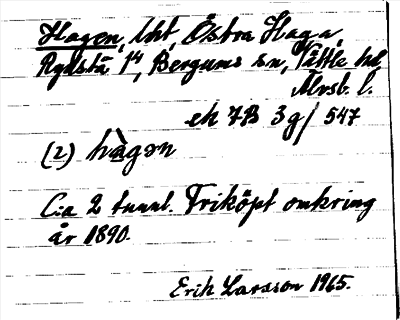 Hagen, lht, Östra Haga,
Rydstä 1⁴, Bergums sn, Vättle hd,
Älvsb. l.
ek 7B 3g/547
(2) hàgən
C:a 2 tunnl. Friköpt omkring
år 1890.
Erik Larsson 1965.